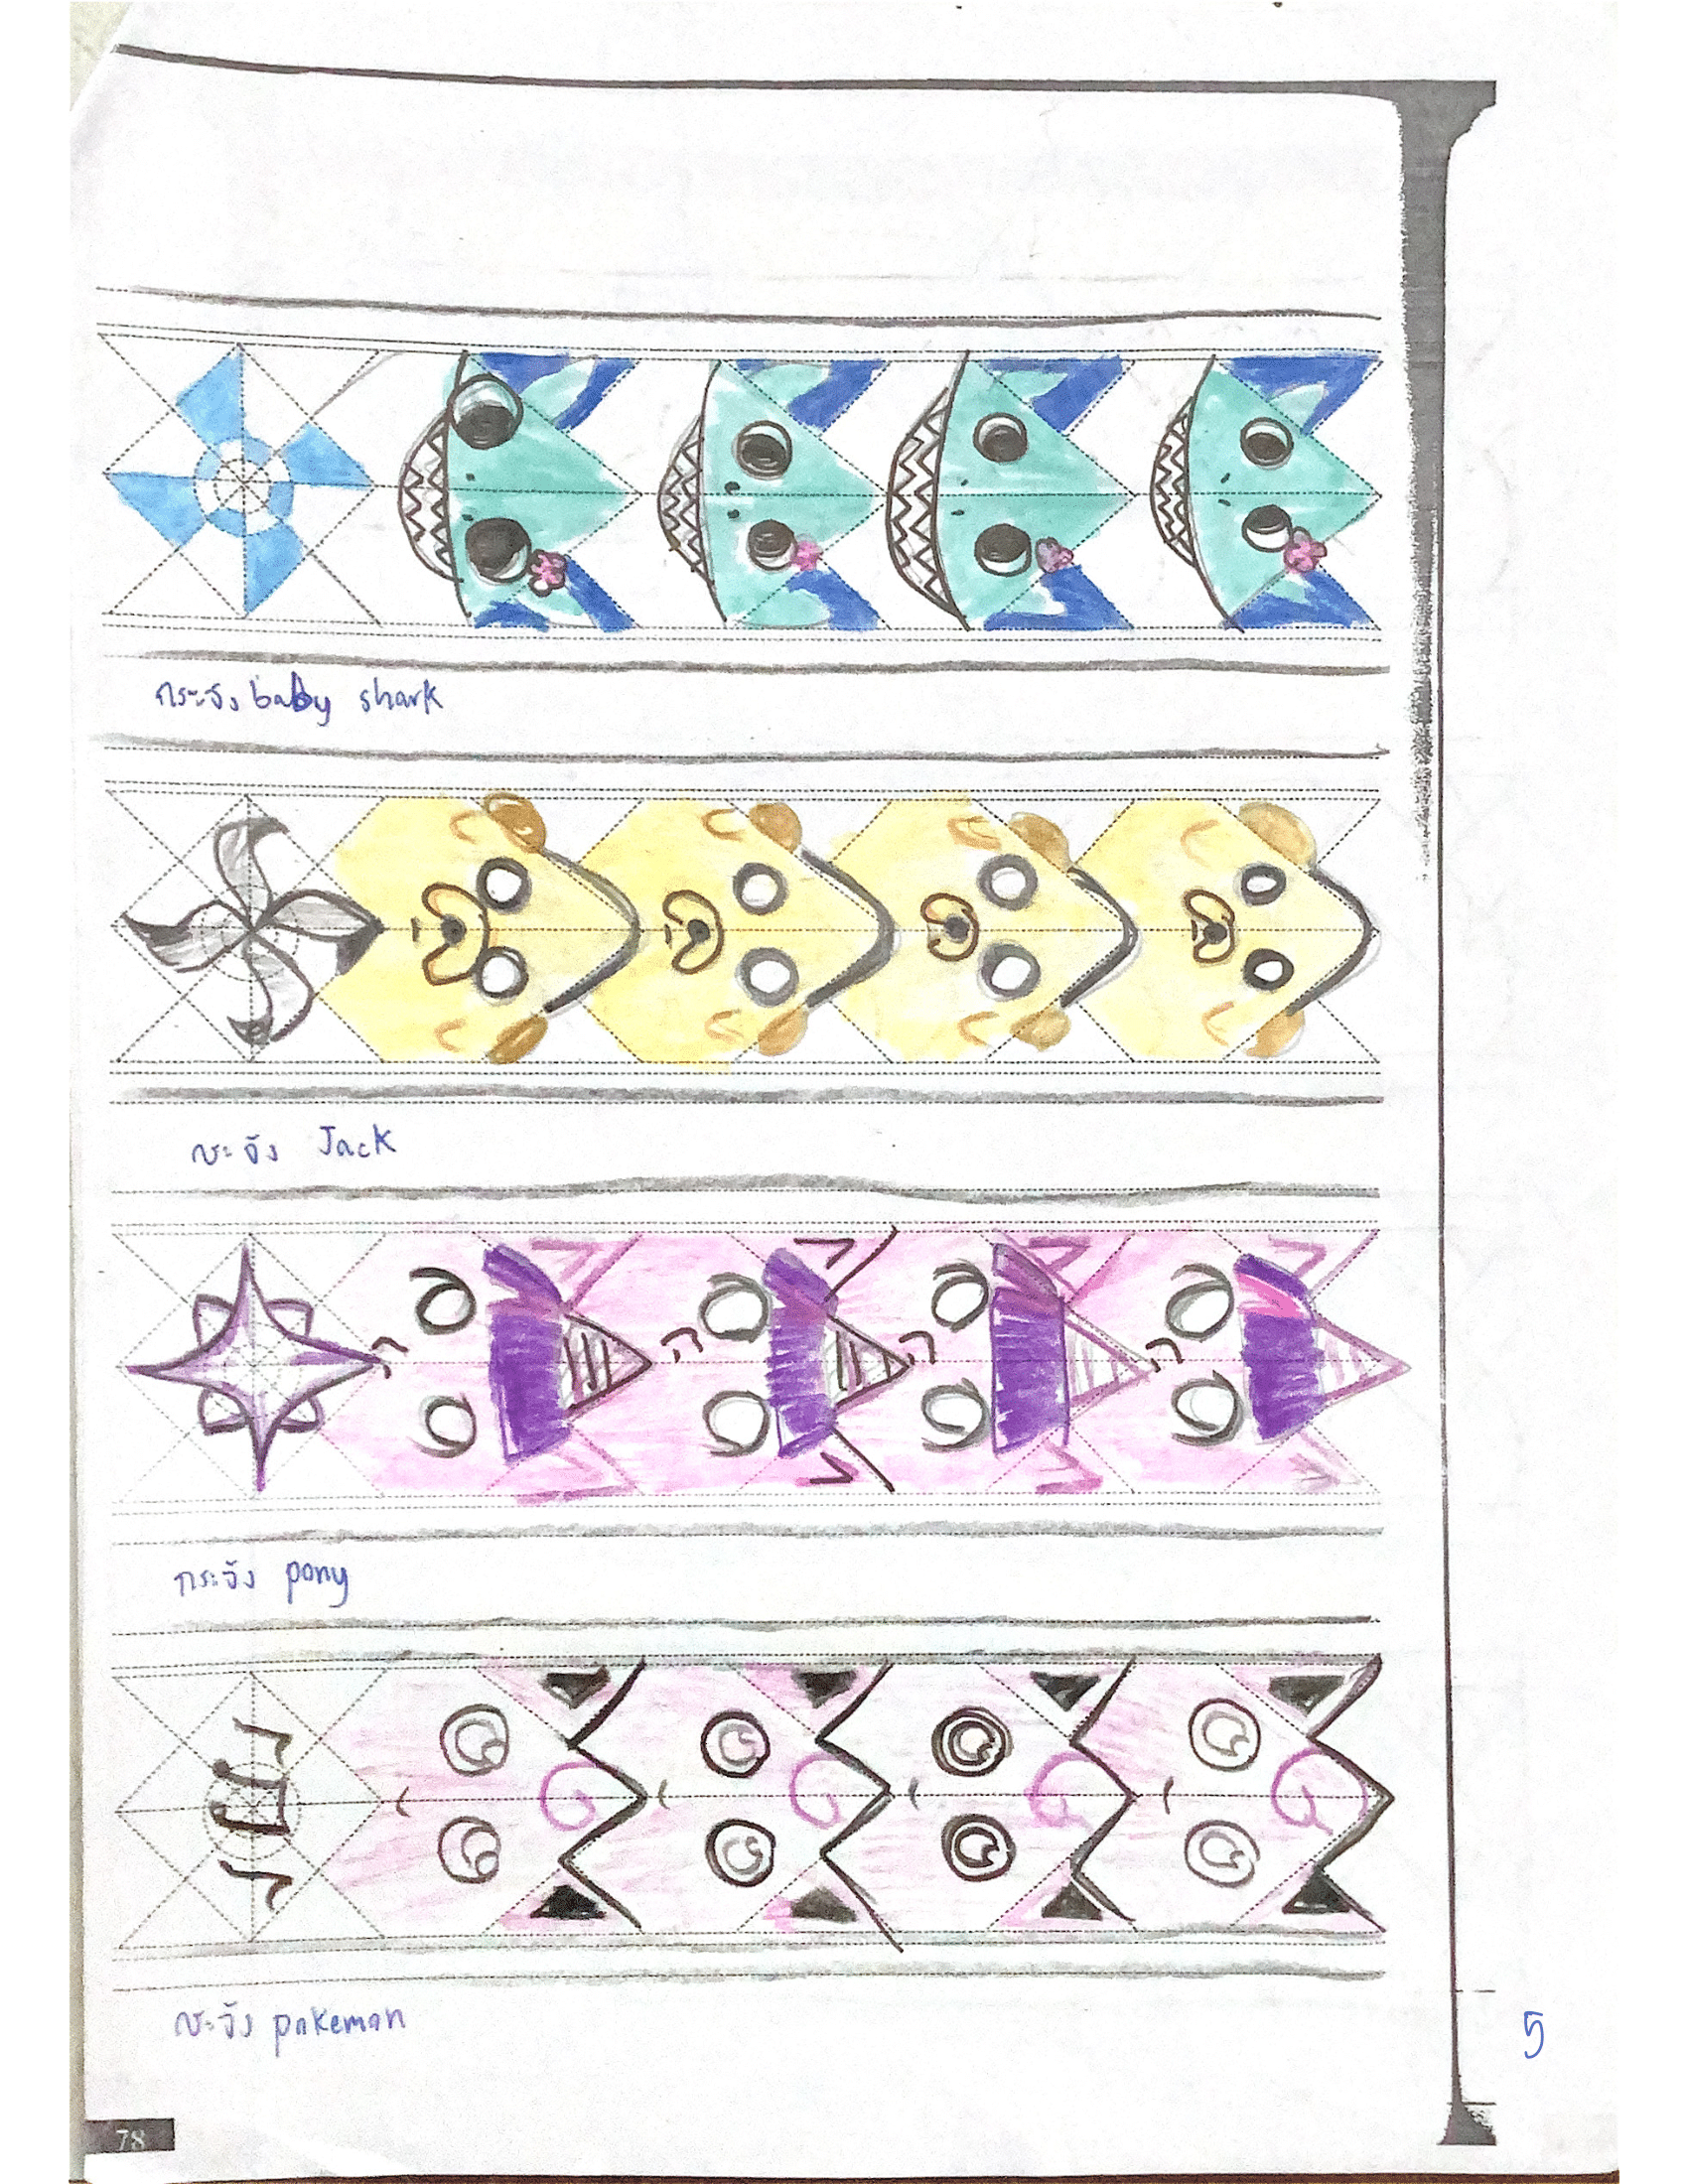 กระจัง baby shark
กระจัง Jack
กระจัง pony
กระจัง pokemon
5
78